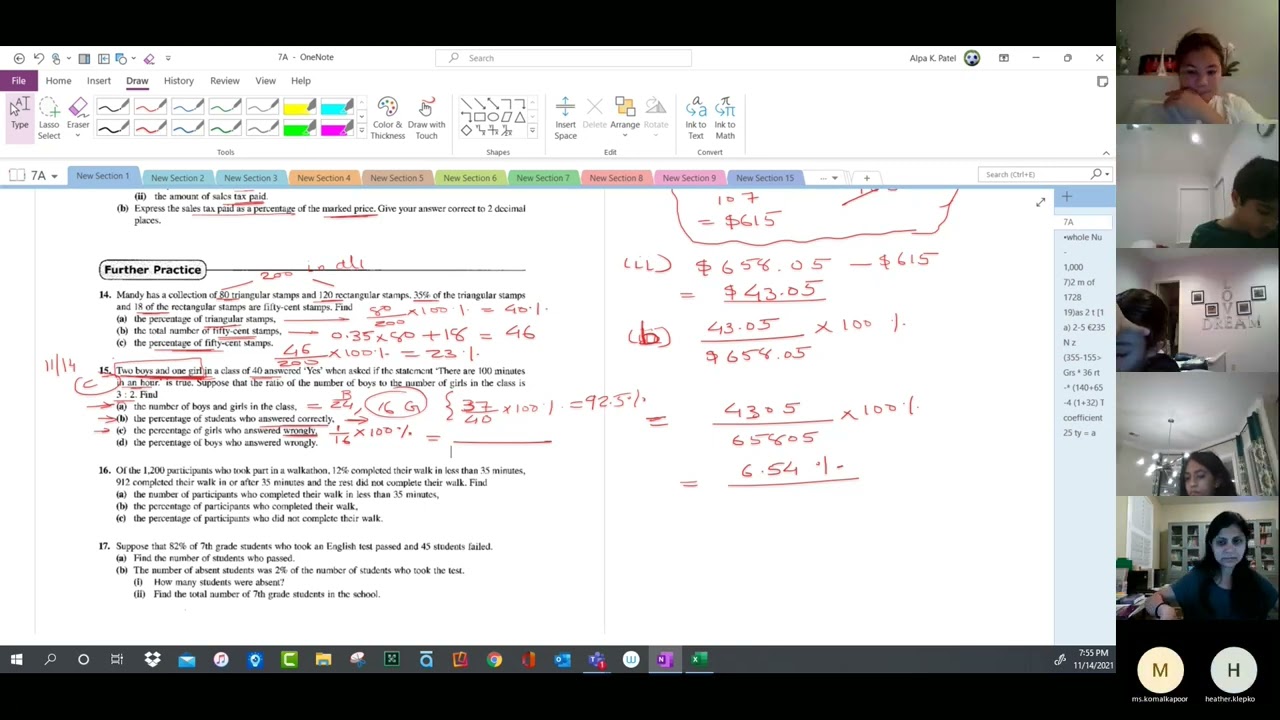 7A - OneNote
Search
Alpa K. Patel
File Home Insert Draw History Review View Help
Type
Lasso Select
Eraser
Color & Thickness
Draw with Touch
Insert Space
Delete
Arrange
Rotate
Ink to Text
Ink to Math
Tools
Shapes
Edit
Convert
7A
New Section 1
New Section 2
New Section 3
New Section 4
New Section 5
New Section 6
New Section 7
New Section 8
New Section 9
New Section 15
Search (Ctrl+E)
(ii) the amount of sales tax paid.
(b) Express the sales tax paid as a percentage of the marked price. Give your answer correct to 2 decimal
places.
Further Practice
200 in all
14. Mandy has a collection of 80 triangular stamps and 120 rectangular stamps. 35% of the triangular stamps
and 18 of the rectangular stamps are fifty-cent stamps. Find
(a) the percentage of triangular stamps, 80/200 × 100% = 40%
(b) the total number of fifty-cent stamps, 0.35×80 + 18 = 46
(c) the percentage of fifty-cent stamps.
46/200 × 100% = 23%
11/14
C
15. Two boys and one girl in a class of 40 answered 'Yes' when asked if the statement 'There are 100 minutes
in an hour.' is true. Suppose that the ratio of the number of boys to the number of girls in the class is
3 : 2. Find
(a) the number of boys and girls in the class, = 24 B, 16 G
(b) the percentage of students who answered correctly, 37/40 × 100% = 92.5%
(c) the percentage of girls who answered wrongly, 1/16 × 100% =
(d) the percentage of boys who answered wrongly.
16. Of the 1,200 participants who took part in a walkathon, 12% completed their walk in less than 35 minutes,
912 completed their walk in or after 35 minutes and the rest did not complete their walk. Find
(a) the number of participants who completed their walk in less than 35 minutes,
(b) the percentage of participants who completed their walk,
(c) the percentage of participants who did not complete their walk.
17. Suppose that 82% of 7th grade students who took an English test passed and 45 students failed.
(a) Find the number of students who passed.
(b) The number of absent students was 2% of the number of students who took the test.
(i) How many students were absent?
(ii) Find the total number of 7th grade students in the school.
107
= $615
(ii) $658.05 - $615
= $43.05
(b) 43.05/$658.05 × 100%
= 4305/65805 × 100%
= 6.54%
7A
•whole Nu
-
1,000
7)2 m of
1728
19)as 2 t (1
a) 2-5 €235
N z
(355-155>
Grs * 36 rt
-* (140+65
-4 (1+32) T
coefficient
25 ty = a
7:55 PM
11/14/2021
M
ms.komalkapoor
H
heather.klepko